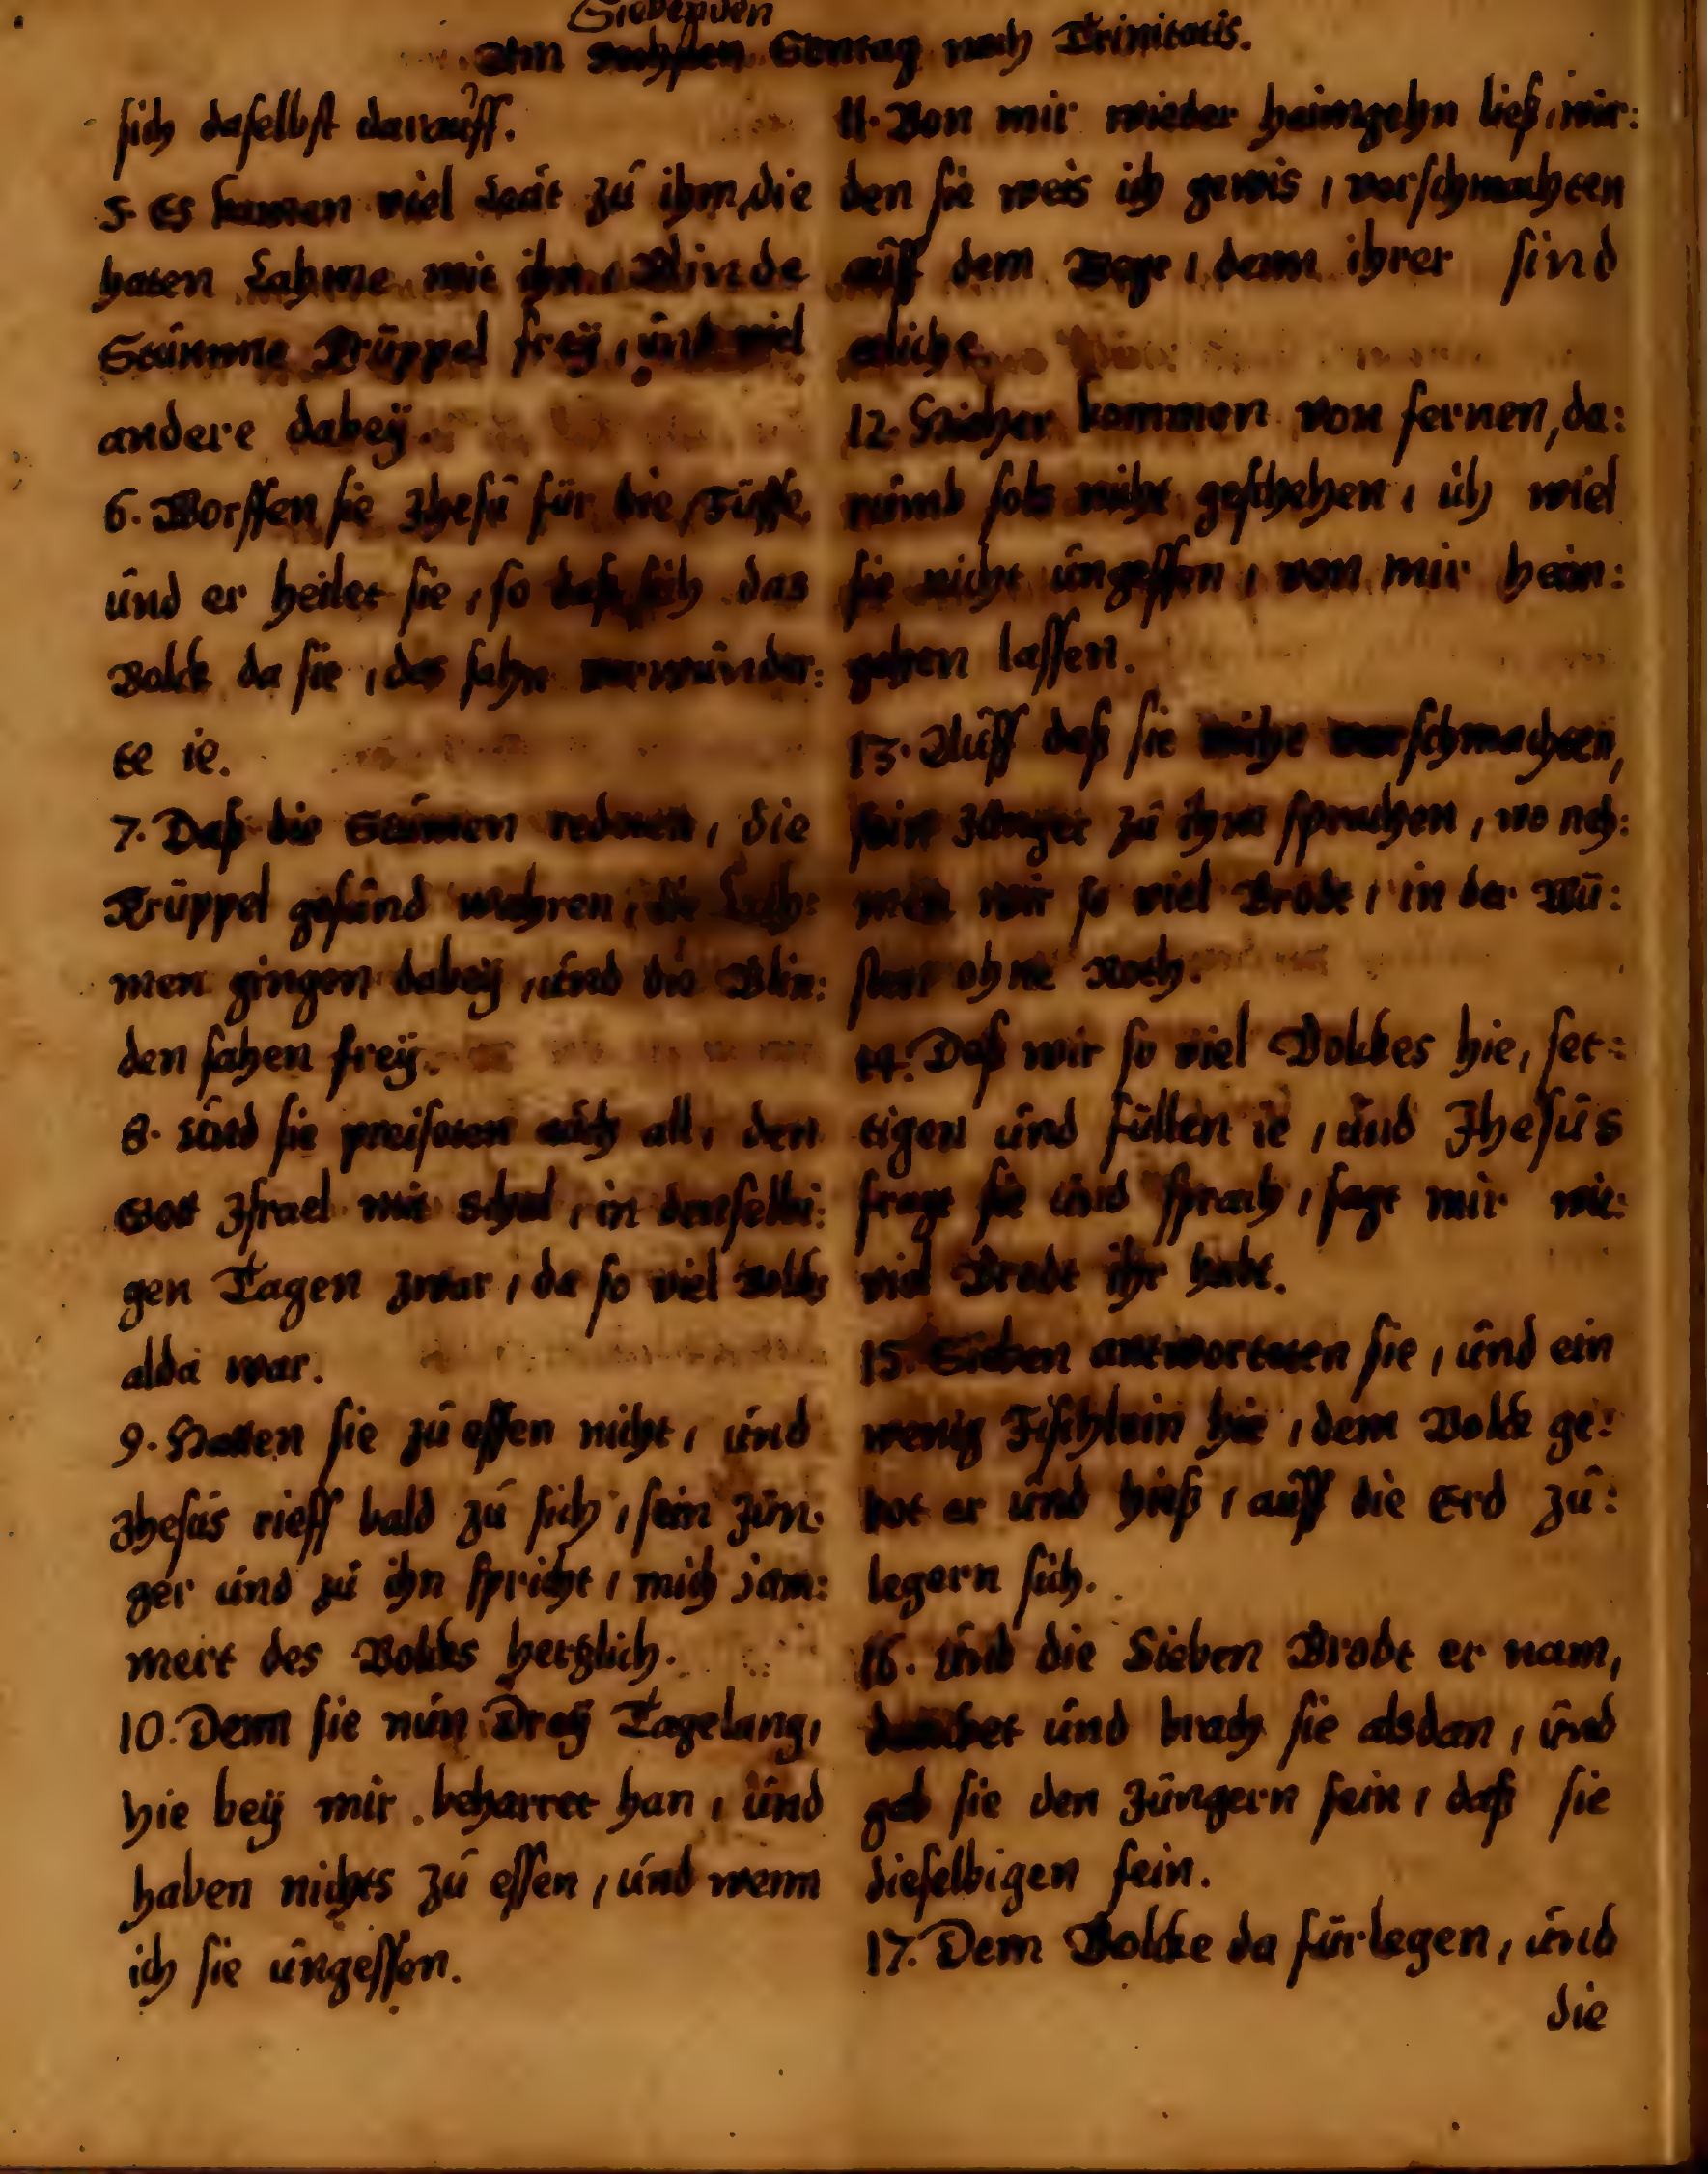 Siebenden
Am sechsten Sontag nach Trinitatis.
sich daselbst darauff.
5. Es kamen viel Leut zu ihm, die
haten Lahme mit ihn, Blinde
Stumme Krüppel frey, und viel
andere dabey.
6. Worffen sie Jhesu für die Füsse,
und er heilet sie, so daß sich das
Volck da sie, das sahn verwunder:
te ie.
7. Daß die Stummen redeten, die
Krüppel gesund wahren, die Lah:
men gingen dabey, und die Blin:
den sahen frey.
8. Und sie preiseten auch all, den
Gott Jsrael mit Schal, in denselbi:
gen Tagen zwar, da so viel Volcks
alda war.
9. Hatten sie zu essen nicht, und
Jhesus rieff bald zu sich, sein Jün:
ger und zu ihn spricht, mich jam:
mert des Volcks hertzlich.
10. Denn sie nun Drey Tagelang,
hie bey mir beharret han, und
haben nichts zu essen, und wenn
ich sie ungessen.
11. Von mir wieder heimgehn ließ, wür:
den sie weis ich gewis, verschmachten
auff dem Wege, denn ihrer sind
etliche.
12. Hieher kommen von fernen, da:
rumb sols nicht geschehen, ich wiel
sie nicht ungessen, von mir heim:
gehen lassen.
13. Auff daß sie nicht verschmachten,
sein Jünger zu ihm sprachen, wo neh:
men wir so viel Brodt, in der Wü:
sten ohne Noth.
14. Daß wir so viel Volckes hie, set:
tigen und füllen ie, und Jhesus
fragt sie und sprach, sagt mir wie:
viel Brodt ihr habt.
15. Sieben antworteten sie, und ein
wenig Fischlein hie, dem Volck ge:
bot er und hieß, auff die Erd zu:
legern sich.
16. Und die Sieben Brodt er nam,
dancket und brach sie alsdan, und
gab sie den Jüngern sein, daß sie
dieselbigen fein.
17. Dem Volcke da fürlegen, und
die